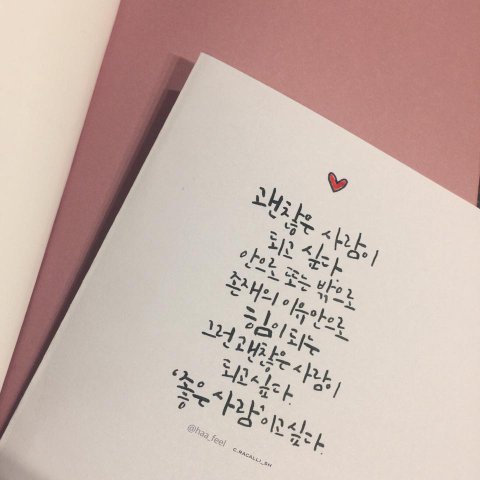 괜찮은 사람이
되고 싶다
안으로 또는 밖으로
존재의 이유만으로
힘이 되는
그런 괜찮은 사람이
되고싶다.
'좋은 사람'이고싶다.
@haa_feel
C.RACALLI_SH